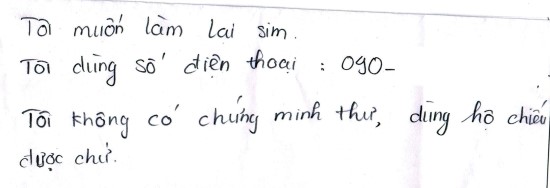 Tôi muốn làm lại sim.
Tôi dùng số điện thoại : 090-
Tôi không có chứng minh thư, dùng hộ chiếu
được chứ.